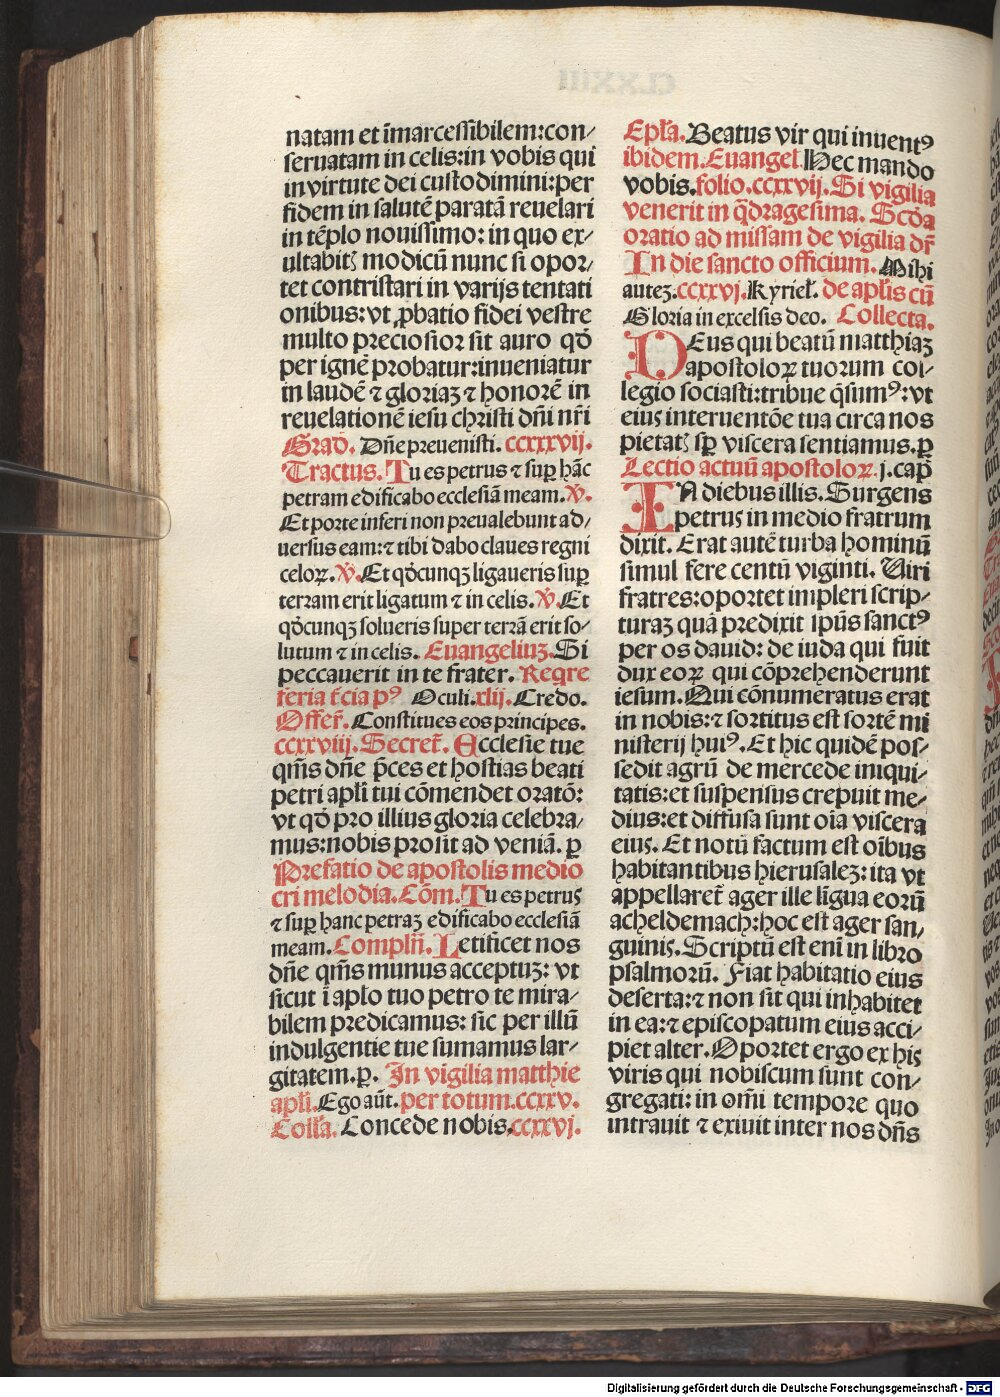 natam et īmarcessibilem:con⸗
seruatam in celis:in vobis qui
in virtute dei custodimini:per
fidem in salutē paratā reuelari
in tēplo nouissimo: in quo ex⸗
ultabitꝭ modicū nunc si opor⸗
tet contristari in varijs tentati
onibus:vt ꝓbatio fidei vestre
multo preciosior sit auro qď
per ignē probatur:inueniatur
in laudē ⁊ gloriaꝫ ⁊ honorē in
reuelationē iesu christi dn̄i nr̄i
Grad̄. Dn̄e preuenisti. ccxxxvij.
Tractus. Tu es petrus ⁊ suꝑ hāc
petram edificabo ecclesiā meam. V̄.
Et porte inferi non preualebunt ad⸗
uersus eam:⁊ tibi dabo claues regni
celoꝝ. V̄. Et qďcunqꝫ ligaueris suꝑ
terram erit ligatum ⁊ in celis. V̄. Et
qďcunqꝫ solueris super terrā erit so⸗
lutum ⁊ in celis. Euangeliuꝫ. Si
peccauerit in te frater. Reqre
feria t̄cia pꝰ Oculi. xlij. Credo.
Offer̄. Constitues eos principes.
ccxxviij. Secret̄. Ecclesie tue
qm̄s dn̄e p̄ces et hostias beati
petri apl̄i tui cōmendet oratō:
vt qď pro illius gloria celebra⸗
mus:nobis prosit ad veniā. ꝑ
Prefatio de apostolis medio
cri melodia. Cōm. Tu es petrus
⁊ suꝑ hanc petraꝫ edificabo ecclesiā
meam. Compln̄. Letificet nos
dn̄e qm̄s munus acceptuꝫ: vt
sicut ī apl̄o tuo petro te mira⸗
bilem predicamus: sic per illū
indulgentie tue sumamus lar⸗
gitatem. ꝑ. In vigilia matthie
apl̄i. Ego aūt. per totum. ccxxv.
Coll̄a. Concede nobis. ccxxvj.
Epl̄a. Beatus vir qui inuentꝰ
ibidem. Euangel̄. Hec mando
vobis. folio. ccxxvij. Si vigilia
venerit in q̄dragesima. Scďa
oratio ad missam de vigilia dr̄
In die sancto officium. Mihi
auteꝫ. ccxxvj. Kyriel̄. de apl̄is cū
Gloria in excelsis deo. Collecta.
DEus qui beatū matthiaꝫ
apostoloꝝ tuorum col⸗
legio sociasti:tribue q̄sumꝰ: vt
eius interuentōe tua circa nos
pietatꝭ sꝑ viscera sentiamus. ꝑ
Lectio actuū apostoloꝝ. j. cap̄
IN diebus illis. Surgens
petrus in medio fratrum
dixit. Erat autē turba hominū
simul fere centū viginti. Uiri
fratres:oportet impleri scrip⸗
turaꝫ quā predixit sp̄us sanctꝰ
per os dauid: de iuda qui fuit
dux eoꝝ qui cōprehenderunt
iesum. Qui cōnumeratus erat
in nobis:⁊ sortitus est sortē mi
nisterij huiꝰ. Et hic quidē pos⸗
sedit agrū de mercede iniqui⸗
tatis:et suspensus crepuit me⸗
dius:et diffusa sunt oīa viscera
eius. Et notū factum est oībus
habitantibus hierusaleꝫ: ita vt
appellaret̄ ager ille līgua eorū
acheldemach:hoc est ager san⸗
guinis. Scriptū est eni̅ in libro
psalmorū. Fiat habitatio eius
deserta:⁊ non sit qui inhabitet
in ea:⁊ episcopatum eius acci⸗
piet alter. Oportet ergo ex his
viris qui nobiscum sunt con⸗
gregati: in om̄i tempore quo
intrauit ⁊ exiuit inter nos dn̄s
Digitalisierung gefördert durch die Deutsche Forschungsgemeinschaft - DFG